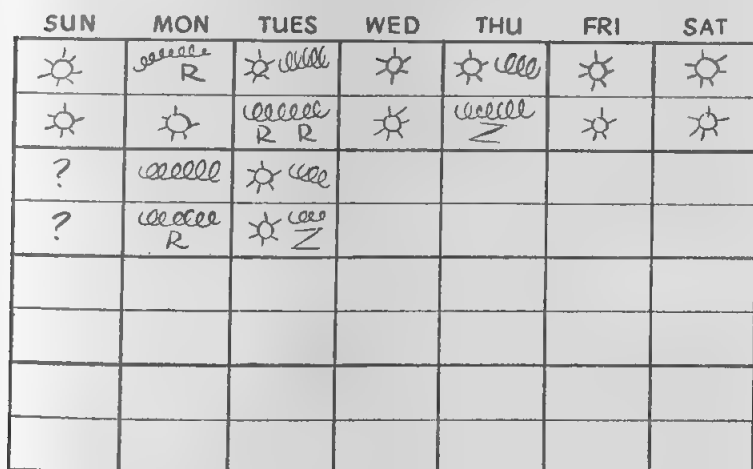 SUN MON TUES WED THU FRI SAT
R
R R Z
?
? R Z